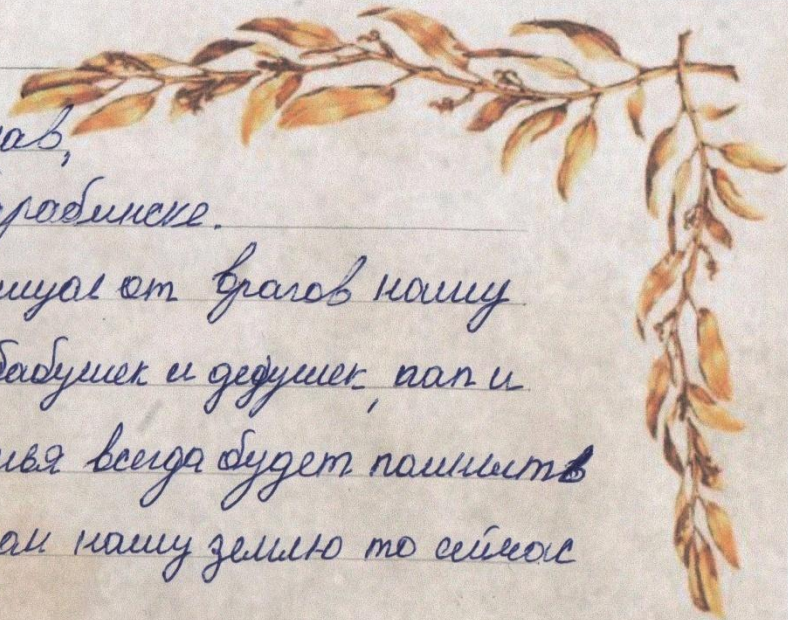 ав,
рабинске.
щал от врагов нашу
бабушек и дедушек, пап и
мья всегда будет помнить
ал нашу землю то сейчас